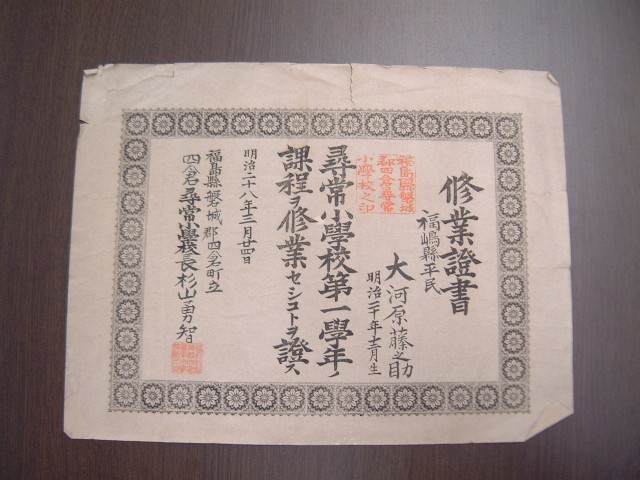 修業證書
福嶋縣平民
大河原藤之助
明治二十年十二月生
尋常小學校第一學年ノ
課程ヲ修業セシコトヲ證ス
明治二十八年三月廿四日
福島縣磐城郡四倉町立
四倉尋常小學校長杉山勇智
福島縣磐城
郡四倉尋常
小學校之印